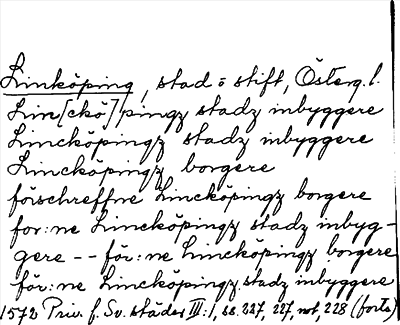 Linköping, stad o stift, Österg. l.
Lin[ckö]pingz stadz inbyggere
Lincköpingz stadz inbyggere
Lincköpingz borgere
förschreffne Lincköpingz borgere
for:ne Lincköpingz stadz inbyg-
gere -- för:ne Lincköpingz borgere
för:ne Lincköpingz stadz inbyggere
1572 Priv. f. Sv. städer III:1, ss. 227, 227, not, 228 (forts)